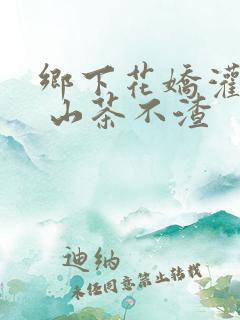 鄉下花嬌灌
山茶不渣
迪纳
未经同意禁止转载